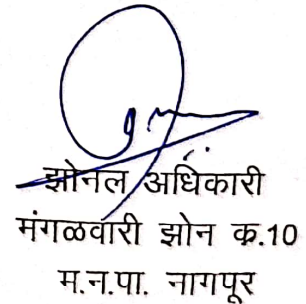 झोनल अधिकारी
मंगळवारी झोन क.10
म.न.पा. नागपूर